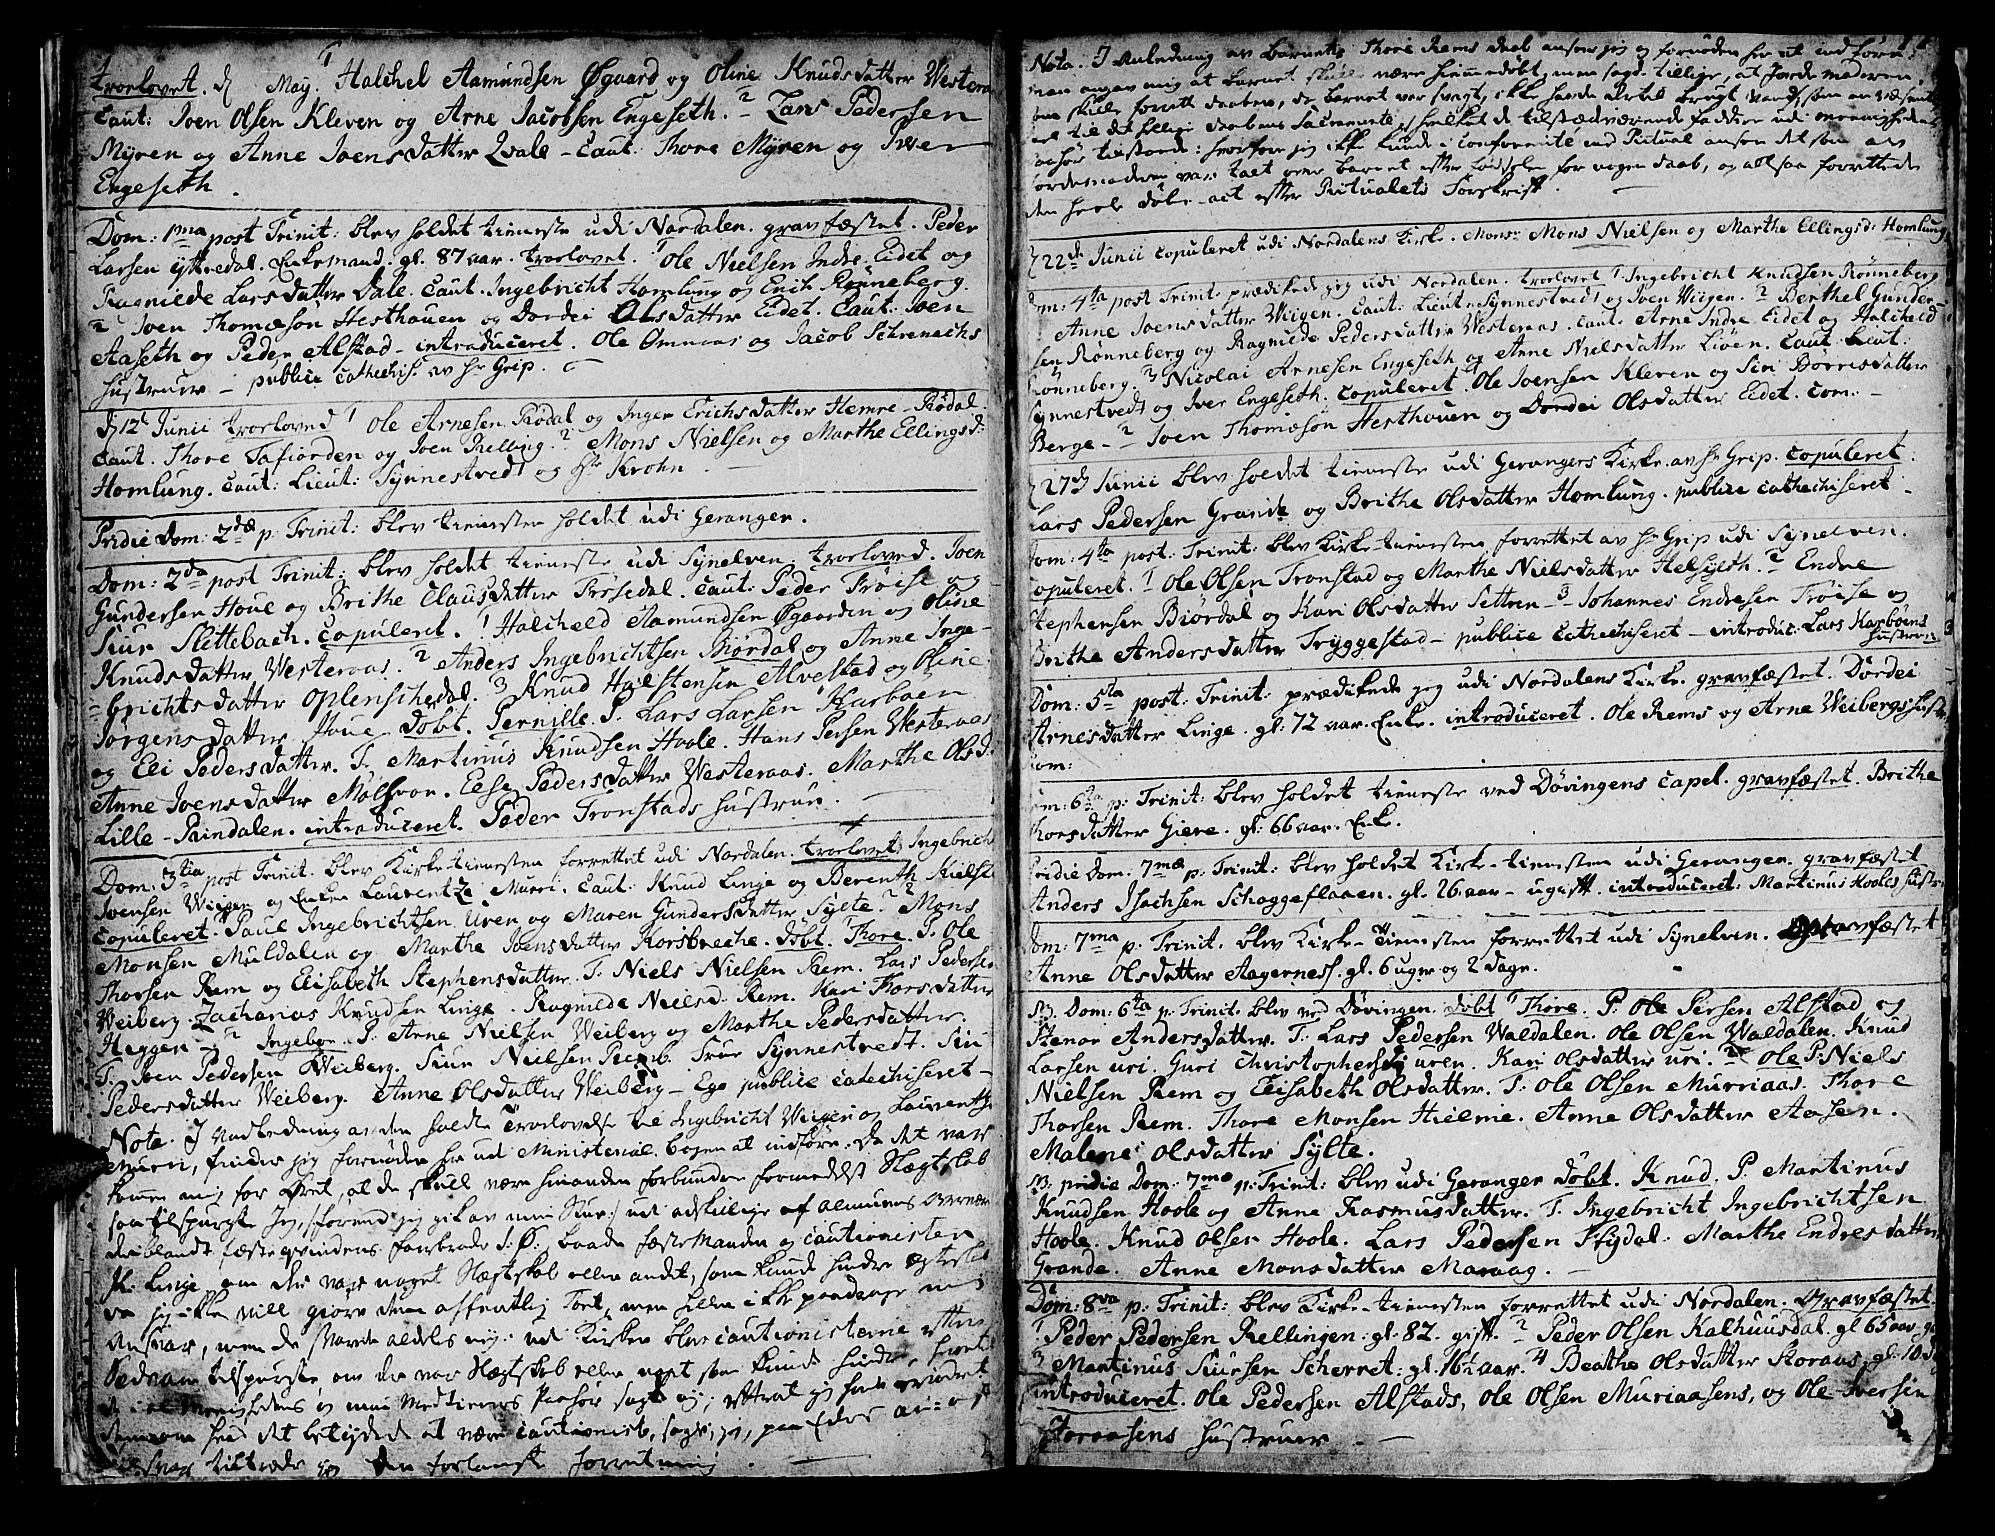 troelovet. d May. 1 Halchel Aamundsen Øgaard og Oline Knudsdatter Westeraas
Caut: Joen Olsen Kleven og Arne Jacobsen Engeseth. 2 Lars Pedersen
Myren og Anne Joensdatter Qvale - Caut: Thore Myren og Iver
Engeseth.
Dom: 1ma post Trinit: blev holdet tieneste udi Nordalen. gravfæstet. Peder
Larsen Yttredal. Enkemand. gl. 87 aar. troelovet. 1 Ole Nielsen Indre Eidet og
Ragnilde Larsdatter Dale. Caut. Ingebricht Homlung og Erich Rønneberg.
2 Joen Thomæsøn Hesthauen og Dordei Olsdatter Eidet. Caut: Joen
Aaseth og Peder Alstad - introduceret. Ole Ømnaas og Jacob Schrenachs
hustruer - publice catechis. av Hr Grip.
D 12t Junii troeloved 1 Ole Arnesen Rødal og Inger Erichsdatter Hemre-Rødal
Caut. Thore Tafiorden og Joen Relling. 2 Mons Nielsen og Marthe Ellingsd:
Homlung. Caut: Lieut: Synnestvedt og Hr Krohn.
Pridie Dom: 2dæ p. Trinit: blev tienesten holdet udi Geranger.
Dom: 2da post Trinit: blev holdet tieneste udi Synelven. troeloved. Joen
Gundersen Houe og Brithe Clausdatter Frøsedal. Caut: Peder Frøise og
Siur Slettebach. Copuleret. 1 Halcheld Aamundsen Øgaarden og Oline
Knudsdatter Westeraas. 2 Anders Ingebrichtsen Mørdal og Anne Inge-
brichtsdatter Oplenschedal. 3 Knud Halstensen Alvestad og Oline
Jørgensdatter Houe. Døbt. Pernille. P. Lars Larsen Karboen
og Eli Pedersdatter. T. Martinus Knudsen Hoole. Hans Persen Westeraas
Anne Joensdatter Møllvor. Else Pedersdatter Westeraas. Marthe Olsd:
Lille-Raindalen. introduceret. Peder Tronstads hustrue.
Dom: 3tia post Trinit. blev Kirke-tienesten forrettet udi Nordalen. troelovet Ingebricht
Joensen Wiigen og Enken Laurentze Murri. Caut: Knud Linge og Berenth Kielst
Copuleret. Paul Ingebrichtsen Uren og Maren Gundersdatter Sylte. 2 Mons
Monsen Muldalen og Marthe Joensdatter Korsbreche. døbt. Thore. P. Ole
Thorsen Rem og Elisabeth Stephensdatter. T. Niels Nielsen Rem. Lars Pedersen
Weiberg. Zacharias Knudsen Linge. Ragnilde Nielsd. Rem. Kari Thorsdatter
Heggen - 2 Ingebor. P. Arne Nielsen Weiberg og Marthe Pedersdatter.
T. Joen Pedersen Weiberg. Siur Nielsen Remb. Frue Synnestvedt. Siri
Pedersdatter Weiberg. Anne Olsdatter Weiberg - Ego publice catechiseret -
Nota. I Anledning av den holdte Troelovelse til Ingebricht Wiigen og Laurentze
Murri, finder jeg fornøden her ud Ministerial-bogen at indføre. Da det var
kommen mig for Øret, at de skulle være hinanden forbundne formedelst Slegtskab
saa tilspurgte Jeg, forend jeg gik av min Stue ud adskillige af almuens
deriblandt fæsteqvindens farbrode S. Ø. baade fæste Manden og cautionisten
K. Linge, om der var noget Slegtskab eller andet, som kunde hindre
da jeg ikke vill giøre dem offentlig Tort, men heller ikke paadrage mig
Ansvar, men de svarede aldeles nej. ud Kirken blev cautionisterne
tilspurgte om der var Slegtskab eller noget som kunde hindre,
Menighedens og min Medtieners Paahør sagt nej;
det betydede at være cautionist, sagde, ja,
tiltrædde jeg den forlangte forretning.
Nota. I Anledning av barnets Thore Rems daab anser jeg og fornøden her at indføre:
man angav mig at barnet skulle være hiemmedøbt, men sagde tillige, at Jordemoderen,
som skulle forrett daaben, da barnet var svagt, ikke havde dertil brugt vand, som en væsentlig
deel til det hellige daabens Sacramente, hvilket de tilstædeværende faddere udi menighedens
paahør tilstode: hvorfore jeg ikke kunde i conformité med Ritual ansee det som av
Jordemoderen var talt over barnet efter fødselen for nogen daab, og altsaa forrettede
den heele døbe-act efter Ritualets Forskrift.
D 22de Junii copuleret udi Nordalens Kirke. Monsr Mons Nielsen og Marthe Ellingsd: Homlung
Dom: 4ta post Trinit: prædikede jeg udi Nordalen. troelovet 1. Ingebricht Knudsen Rønneberg
Anne Joensdatter Wiigen. Caut: Lieut: Synnestvedt og Joen Wiigen. 2 Berthel Gunder-
sen Rønneberg og Ragnilde Pedersdatter Westeraas. Caut. Arne Indre Eidet og Halcheld
Rønneberg. 3 Nicolai Arnesen Engeseth og Anne Nielsdatter Liven. Caut. Lieut:
Synnestvedt og Iver Engeseth. Copuleret. 1 Ole Joensen Kleven og Siri Børresdatter
Berge - 2 Joen Thomæsøn Hesthauen og Dordei Olsdatter Eidet. Com: -
D 27de Junii blev holdet tieneste udi Gerangers Kirke av Hr Grip. Copuleret.
Lars Pedersen Grande og Brithe Olsdatter Homlung. publice catechiseret -
Dom: 4ta post: Trinit: blev Kirke-tienesten forrettet av Hr Grip udi Synelven.
Copuleret. 1 Ole Olsen Tronstad og Marthe Nielsdatter Helsyth. 2 Endre
Stephensen Biørdal og Kari Olsdatter Settren - 3 Johannes Endresen Frøise og
Brithe Andersdatter Tryggestad - publice catechiseret - introduc: Lars Karboens
hustrue
Dom: 5ta post: Trinit: prædikede jeg udi Nordalens Kirke. gravfæstet. Dordei
Arnesdatter Linge. gl: 72 aar. Enke. introduceret. Ole Rems og Arne Weibergs hustr
Com:
Dom: 6ta p: Trinit: blev holdet tieneste ved Døvingens Capel. gravfæstet. Brithe
Thorsdatter Giere. gl: 66 aar. Enke.
Pridie Dom: 7mæ p: Trinit: blev holdet Kirke-tienesten udi Geranger. gravfæstet
Anders Isachsen Schaggeflaaen. gl. 26 aar - ugift. introduceret: Martinus Hooles hustr.
Dom: 7ma p: Trinit: blev Kirke-Tienesten forrettet udi Synelven. gravfæstet
Anne Olsdatter Aagernes. gl. 6 uger og 2 dage.
NB. Dom: 6ta p: Trinit. blev ved Døvingen. Døbt 1 Thore. P: Ole Persen Alstad og
Stenor Andersdatter. T: Lars Pedersen Waldalen. Ole Olsen Waldalen. Knud
Larsen Uri. Guri Christophersd: Uren. Kari Olsdatter Uri. 2 Ole P. Niels
Nielsen Rem og Elisabeth Olsdatter. T: Ole Olsen Murriaas. Thore
Thorsen Rem. Thore Monsen Hielme. Anne Olsdatter Aasen.
Malene Olsdatter Sylte.
NB. pridie Dom: 7mæ p: Trinit: blev udi Geranger Døbt. Knud. P. Martinus
Knudsen Hoole og Anne Rasmusdatter. T. Ingebricht Ingebrichtsen
Hoole. Knud Olsen Hoole. Lars Pedersen Frigdal. Marthe Endresdatter
Grande. Anne Monsdatter Maraag. -
Dom: 8va p: Trinit: blev Kirke-tienesten forrettet udi Nordalen. Gravfæstet.
1 Peder Pedersen Rellingen: gl: 82. gift. 2 Peder Olsen Kalhuusdal. gl 65 aar
3 Martinus Siursen Scherret: gl. 16½ aar. 4 Beathe Olsdatter Storaas. gl: 10
introduceret. Ole Pedersen Alstads, Ole Olsen Muriaasens, og Ole Iversen
Joraasens hustruer. -